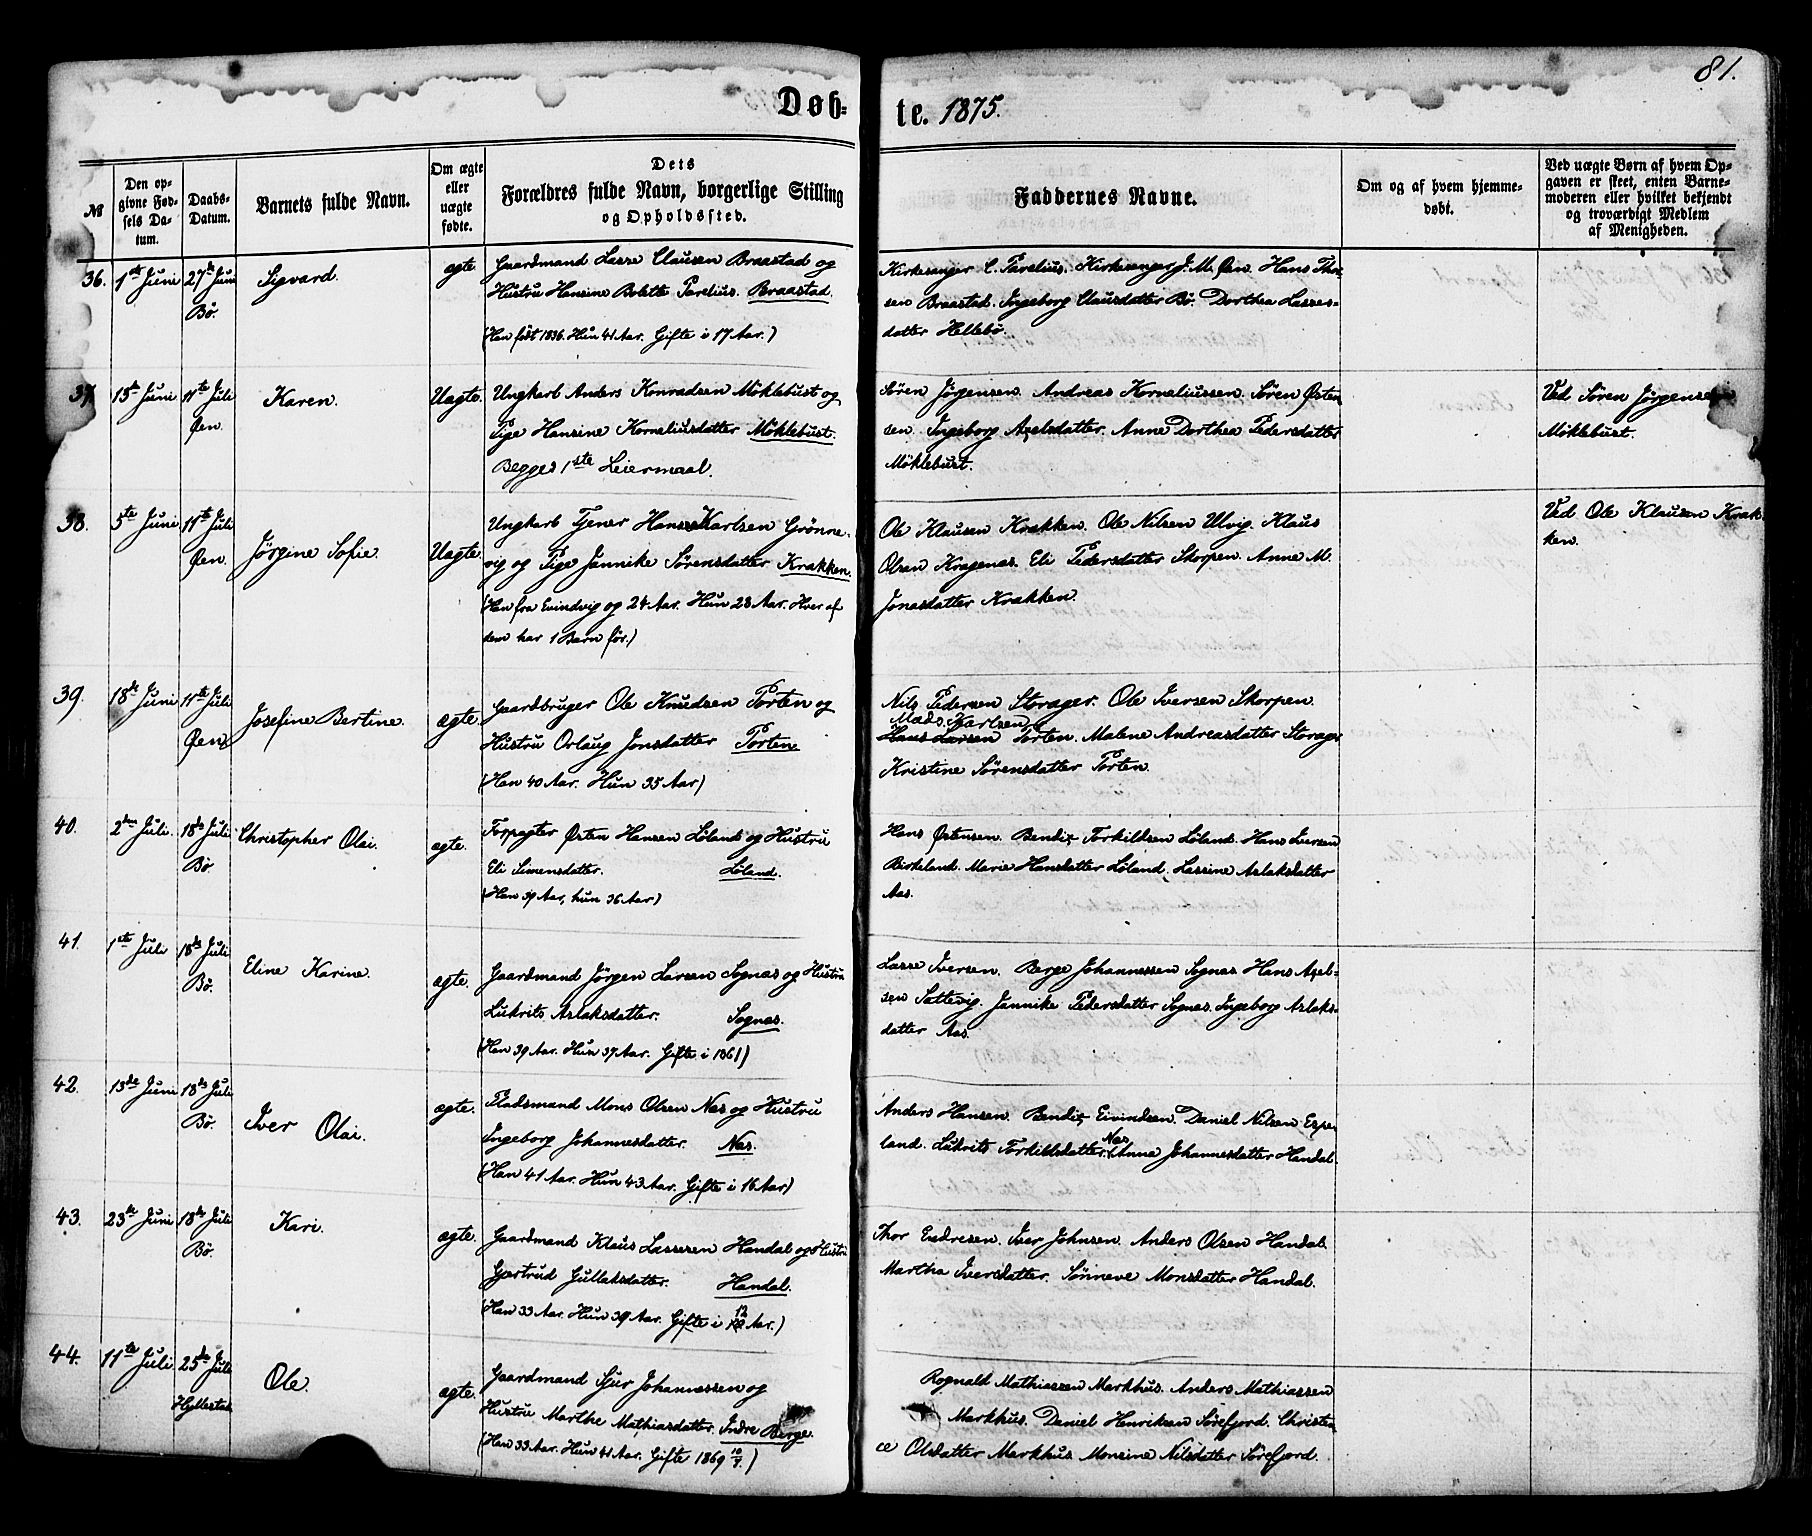 81.
Døb-
te. 1875.
№
Den opgivne Fødsels Datum.
Daabs-Datum.
Barnets fulde Navn.
Om ægte eller uægte fødte.
Dets
Forældres fulde Navn, borgerlige Stilling
og Opholdssted.
Faddernes Navne.
Om og af hvem hjemmedøbt.
Ved uægte Børn af hvem Opgaven er skeet, enten Barnemoderen eller hvilket bekjendt og troværdigt Medlem af Menigheden.
36. 1ste Juni 27de Juni Bø. Sigvard. ægte
Gaardmand Lasse Clausen Braastad og
Hustru Hansine Bolette Parelius. Braastad.
(Han født 1836. Hun 41 Aar. Gifte i 17 Aar.)
Kirkesanger C. Parelius. Kirkesanger J. M. Øen. Hans Thor-
sen Braastad. Ingeborg Clausdatter Bø. Dorthea Lasses-
datter Hellebø.
37. 15de Juni 11te Juli Øen. Karen. Uægte.
Ungkarl Anders Konradsen Möklebust og
Pige Hansine Korneliusdatter Möklebust.
Begges 1ste Leiermaal.
Søren Jørgensen. Andreas Korneliussen. Søren Østen
sen. Ingeborg Axelsdatter. Anne Dorthea Pedersdatter
Möklebust.
Ved Søren Jørgensen
Möklebust.
38. 5te Juni 11te Juli Øen. Jørgine Sofie. Uægte.
Ungkarl Tjener Hans Karlsen Grönne-
vig og Pige Jannike Sørensdatter Krakken.
(Han fra Evindvig og 24 Aar. Hun 28 Aar. Hver af
dem har 1 Barn før.)
Ole Klausen Krakken. Ole Nilsen Ulvig. Klaus
Olsen Kragenæs. Eli Pedersdatter Skorpen. Anne M.
Jonasdatter Krakken.
Ved Ole Klausen Krak-
ken.
39. 18de Juni 11te Juli Øen Josefine Bertine. ægte.
Gaardbruger Ole Knudsen Porten og
Hustru Orlaug Jonsdatter Porten
(Han 40 Aar. Hun 35 Aar)
Nils Pedersen Storager. Ole Iversen Skorpen.
Mads Karlsen
Hans Larsen Porten. Malene Andreasdatter Storager
Kristine Sørensdatter Porten.
40. 2den Juli. 18de Juli Bø. Christopher Olai. ægte.
Forpagter Østen Hansen Løland og Hustru
Eli Simensdatter. Løland.
(Han 39 Aar, hun 36 Aar)
Hans Østensen. Bendix Torkildsen Løland. Hans Iversen
Birkeland. Marie Hansdatter Løland. Lassine Aslaksdatter
Aas.
41. 1ste Juli 18de Juli Bø. Eline Karine. ægte.
Gaardmand Jørgen Larsen Sognæs og Hustru
Lukrits Aslaksdatter. Sognæs.
(Han 39 Aar. Hun 37 Aar. Gifte i 1861)
Lasse Iversen. Berge Johannessen Sognæs Hans Axel-
sen Sattevig. Jannike Pedersdatter Sognæs. Ingeborg Aslaks-
datter Aas.
42. 13de Juni 18de Juli Bø. Iver Olai. ægte.
Pladsmand Mons Olsen Næs og Hustru
Ingeborg Johannesdatter. Næs.
(Han 41 Aar. Hun 43 Aar. Gifte i 16 Aar)
Anders Hansen. Bendix Eivindsen. Daniel Nilsen Espe-
land. Lukrits Torkildsdatter Næs. Anna Johannesdatter Handal.
43. 23de Juni 18de Juli Bø. Kari. ægte.
Gaardmand Klaus Lassesen Handal og Hustru
Gjertrud Gullaksdatter. Handal.
(Han 33 Aar. Hun 39 Aar. Gifte i 12 Aar.)
Thor Endresen. Iver Johnsen. Anders Olsen Handal.
Martha Iversdatter. Sønneve Monsdatter Handal.
44. 11te Juli 25de Juli Hyllestad Ole. ægte.
Gaardmand Sjur Johannessen og
Hustru Marthe Mathiasdatter. Indre Berge.
(Han 33 Aar. Hun 41 Aar. Gifte 1869 10/7.)
Rognald Mathiassen Markhus. Anders Mathiassen
Markhus. Daniel Henriksen Sørefjord. Christen
ce Olsdatter Markhus. Monsine Nilsdatter Sørefjord.